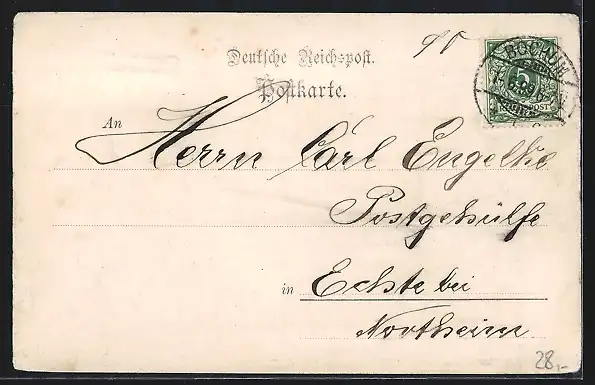 Deutsche Reichspost.
Postkarte.
BOCHUM
5
REICHSPOST
An
Herrn Carl Engelke
Postgehülfe
in Echte bei
Northeim
28,-